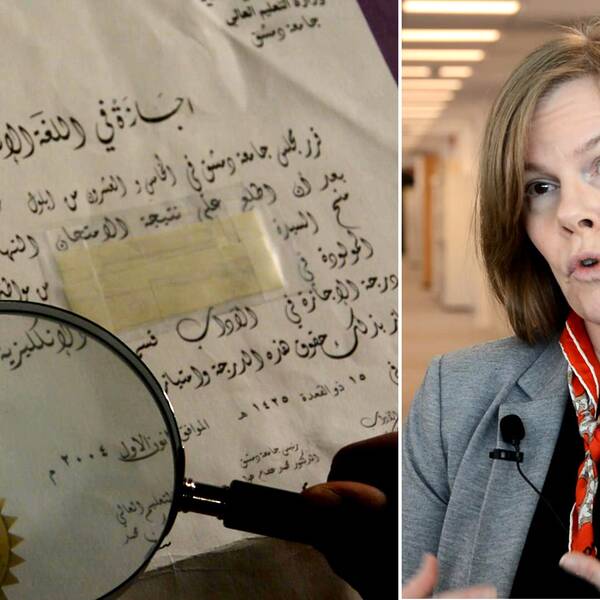 وزارة التعليم العالي
جامعة دمشق
اجازة في اللغة الإ
قرر مجلس جامعة دمشق في الخامس والعشرين من ايلول
بعد أن اطلع على نتيجة الامتحان النها
منح السيدة
المولودة في
درجة الإجازة في الآداب قسم الإنكليزية
بذلك حقوق هذه الدرجة وامتيا
في ١٥ ذو القعدة ١٤٢٥ هـ الموافق كانون الاول ٢٠٠٤ م
رئيس جامعة دمشق
الدكتور محمد
التعليم العالي